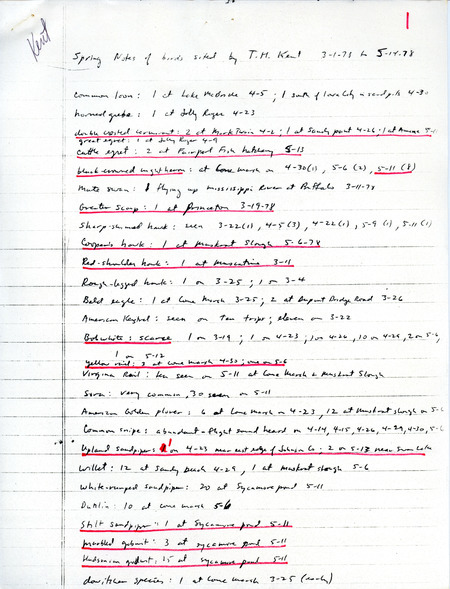 1
Kent
Spring Notes of birds sited by T.H. Kent 3-1-78 to 5-14-78
Common loon: 1 at Lake McBride 4-5; 1 south of Iowa City in sandpits 4-30
horned grebe: 1 at Jolly Roger 4-23
double crested cormorant: 2 at Mark Twain 4-2; 1 at Sandy point 4-26; 1 at Amana 5-11
great egret: 1 at Jolly Roger 4-9
cattle egret: 2 at Fairport Fish hatchery 5-13
black-crowned night heron: at Cone marsh on 4-30(1), 5-6 (2), 5-11 (8)
Mute swan: 1 flying up Mississippi River at 3-11-78
Greater Scaup: 1 at Princeton 3-19-78
Sharp-shinned hawk: seen 3-22(1), 4-5(3), 4-22(1), 5-9(1), 5-11(1)
Cooper's hawk: 1 at Muskrat Slough 5-6-78
Red-shoulder hawk: 1 at Muscatine 3-11
Rough-legged hawk: 1 on 3-25; 1 on 3-4
Bald eagle: 1 at Cone Marsh 3-25; 2 at Dupont Bridge Road 3-26
American Kestrel: seen on ten trips; eleven on 3-22
Bobwhite: scarce 1 on 3-19; 1 on 4-23, 1 on 4-26, 10 on 4-29, 2 on 5-6,
1 on 5-12
yellow rail: 3 at Cone marsh 4-30; one on 5-6
Virginia Rail: ten seen on 5-11 at Cone Marsh & Muskrat Slough
Sora: very common, 30 seen on 5-11
American Golden plover: 6 at Cone marsh on 4-23, 12 at Muskrat slough on 5-6
Common snipe: abundant - flight sound heard on 4-14, 4-15, 4-26, 4-29, 4-30, 5-6
Upland sandpiper: 1 on 4-23 near east edge of Johnson Co; 2 on 5-13 near Swan Lake
Willet: 12 at Sandy Beach 4-29, 1 at Muskrat slough 5-6
White-rumped sandpiper: 20 at Sycamore pond 5-11
Dunlin: 10 at Cone marsh 5-6
Stilt sandpiper: 1 at Sycamore pond 5-11
marbled godwit: 3 at sycamore pond 5-11
Hudsonian godwit: 15 at sycamore pond 5-11
dowitcher species: 1 at Cone marsh 3-25 (early)